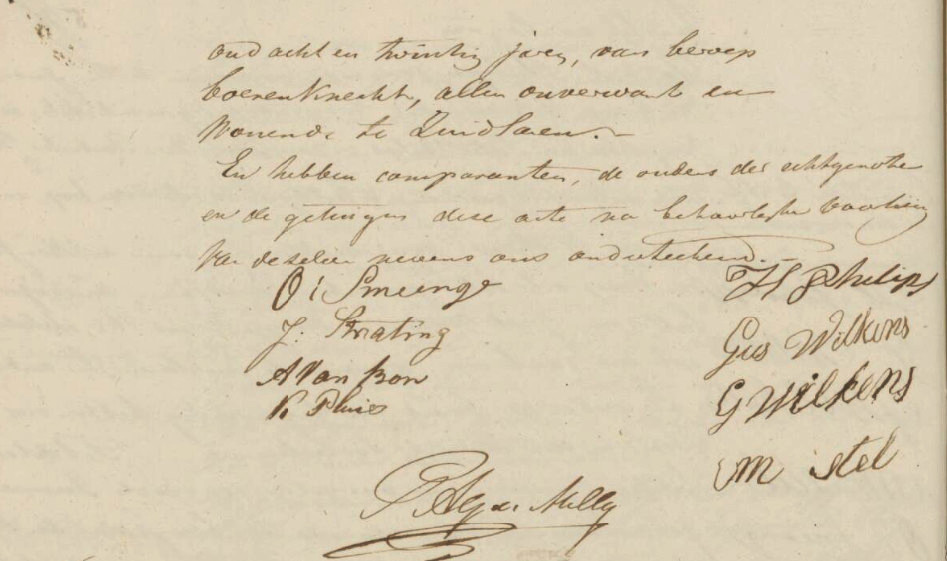 oud acht en twintig jaren, van beroep
boerenknecht, allen onverwant en
wonende te Zuidlaren.-
En hebben comparanten, de ouders der echtgenote
en de getuigen deze acte na behoorlijke voorlezing
van dezelve nevens ons onderteekend.-
O: Smeenge
J: Strating
A Van Bon
K Pluis
H Philips
Gus Wilkens
G Wilkens
M Stel